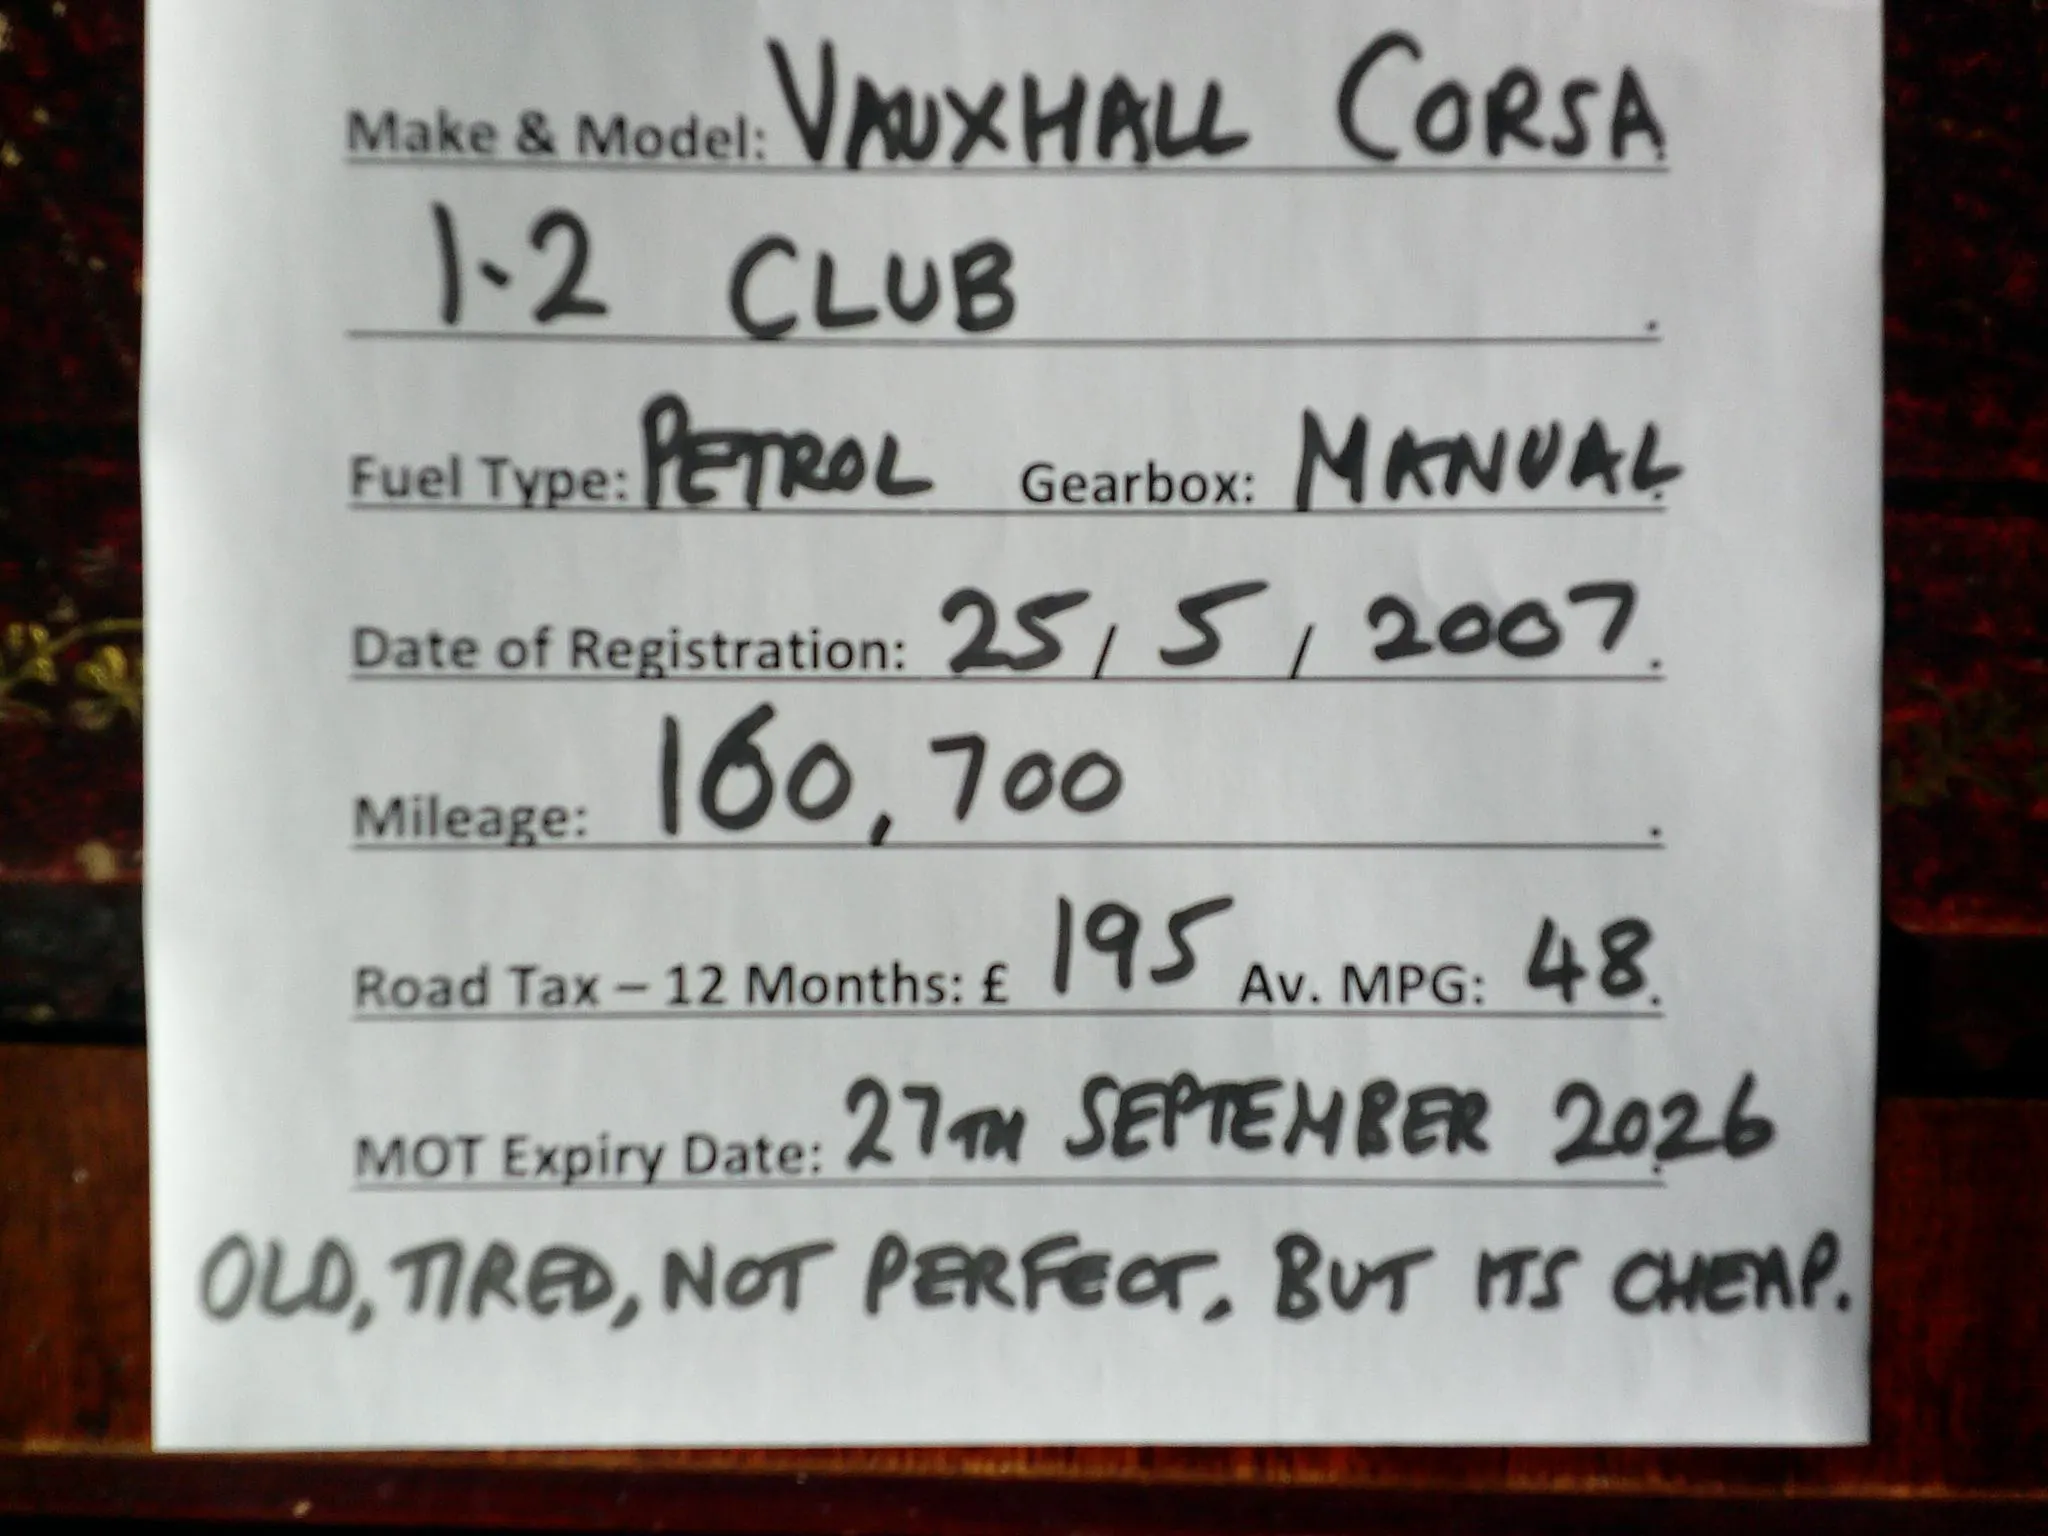 Make & Model: VAUXHALL CORSA.
1.2 CLUB .
Fuel Type: PETROL Gearbox: MANUAL.
Date of Registration: 25 / 5 / 2007.
Mileage: 160,700 .
Road Tax – 12 Months: £ 195 Av. MPG: 48.
MOT Expiry Date: 27TH SEPTEMBER 2026.
OLD, TIRED, NOT PERFECT, BUT ITS CHEAP.